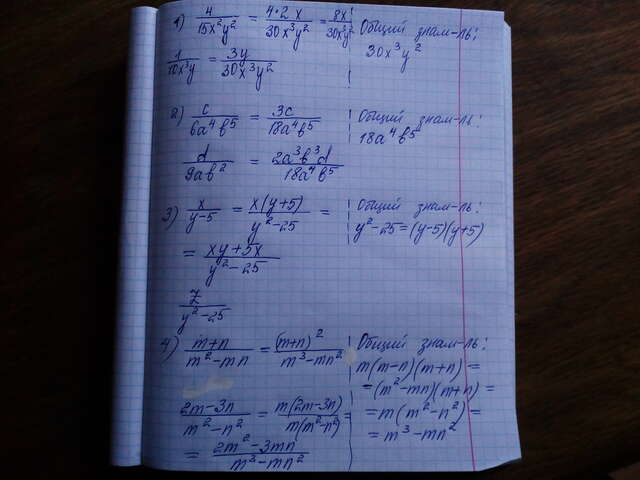 1) 4/15x²y² = 4·2x/30x³y² = 8x/30x³y² Общий знам-ль:
30x³y²
1/10x³y = 3y/30x³y²
2) c/6a⁴b⁵ = 3c/18a⁴b⁵ Общий знам-ль:
18a⁴b⁵
d/9ab² = 2a³b³d/18a⁴b⁵
3) x/y-5 = x(y+5)/y²-25 = Общий знам-ль:
y²-25=(y-5)(y+5)
= xy+5x/y²-25
z/y²-25
4) m+n/m²-mn = (m+n)²/m³-mn² Общий знам-ль:
m(m-n)(m+n) =
=(m²-mn)(m+n) =
2m-3n/m²-n² = m(2m-3n)/m(m²-n²) = = m(m²-n²) =
= m³-mn²
= 2m²-3mn/m³-mn²